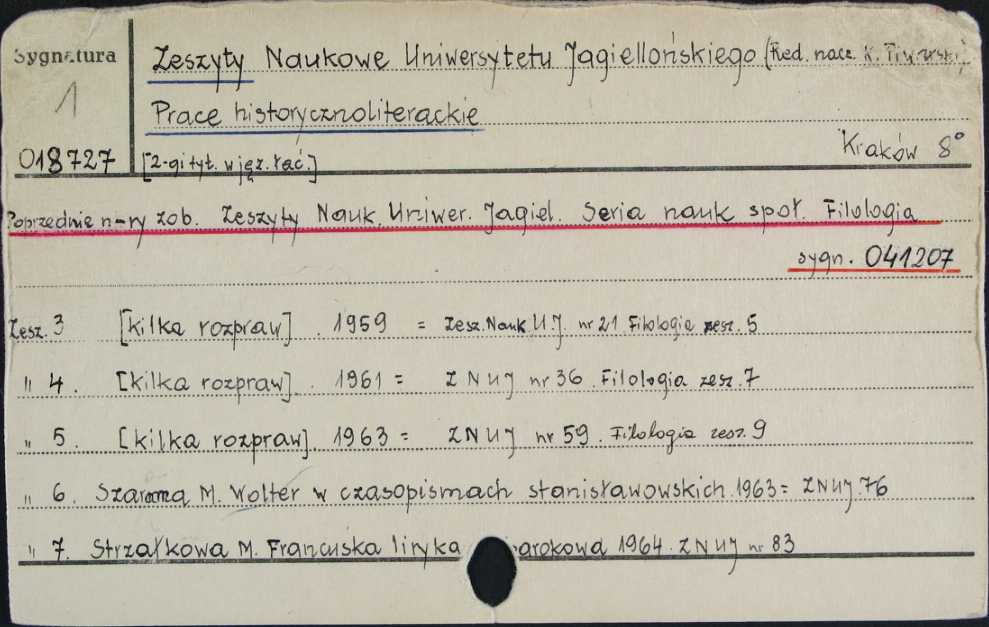 Sygnatura
1
018727
Zeszyty Naukowe Uniwersytetu Jagiellońskiego (Red. nacz. K.
Prace historycznoliterackie
Kraków 8°
[2-gi tyt. w jęz. łać.]
Poprzednie n-ry zob. Zeszyty Nauk. Uniwer. Jagiel. Seria nauk społ. Filologia
sygn. 041207
Zesz. 3 [kilka rozpraw] . 1959 = Zesz. Nauk. U.J. nr 21 Filologia zesz. 5
" 4. [kilka rozpraw] . 1961 = ZNUJ nr 36 . Filologia zesz. 7
" 5. [kilka rozpraw] . 1963 = ZNUJ nr 59 . Filologia zesz. 9
" 6. M. Wolter w czasopismach stanisławowskich. 1963 = ZNUJ. 76
" 7. Strzałkowa M. Francuska liryka arokowa 1964. ZNUJ nr 83